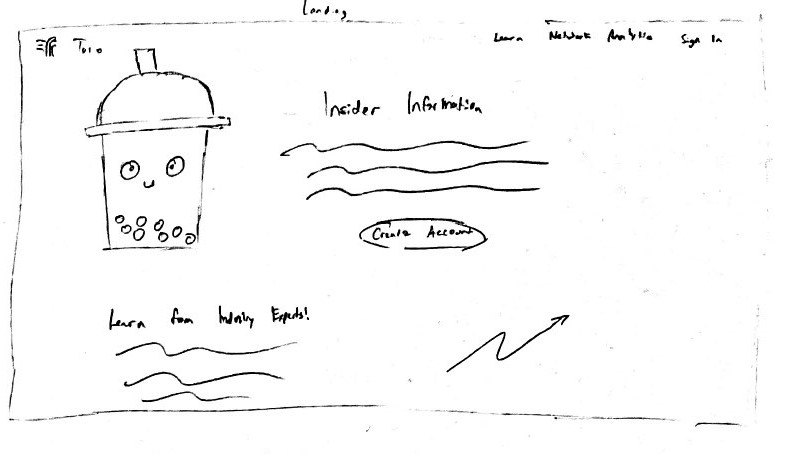 Landing
Toro
Learn Network Analytics Sign In
Insider Information
Create Account
Learn from Industry Experts!